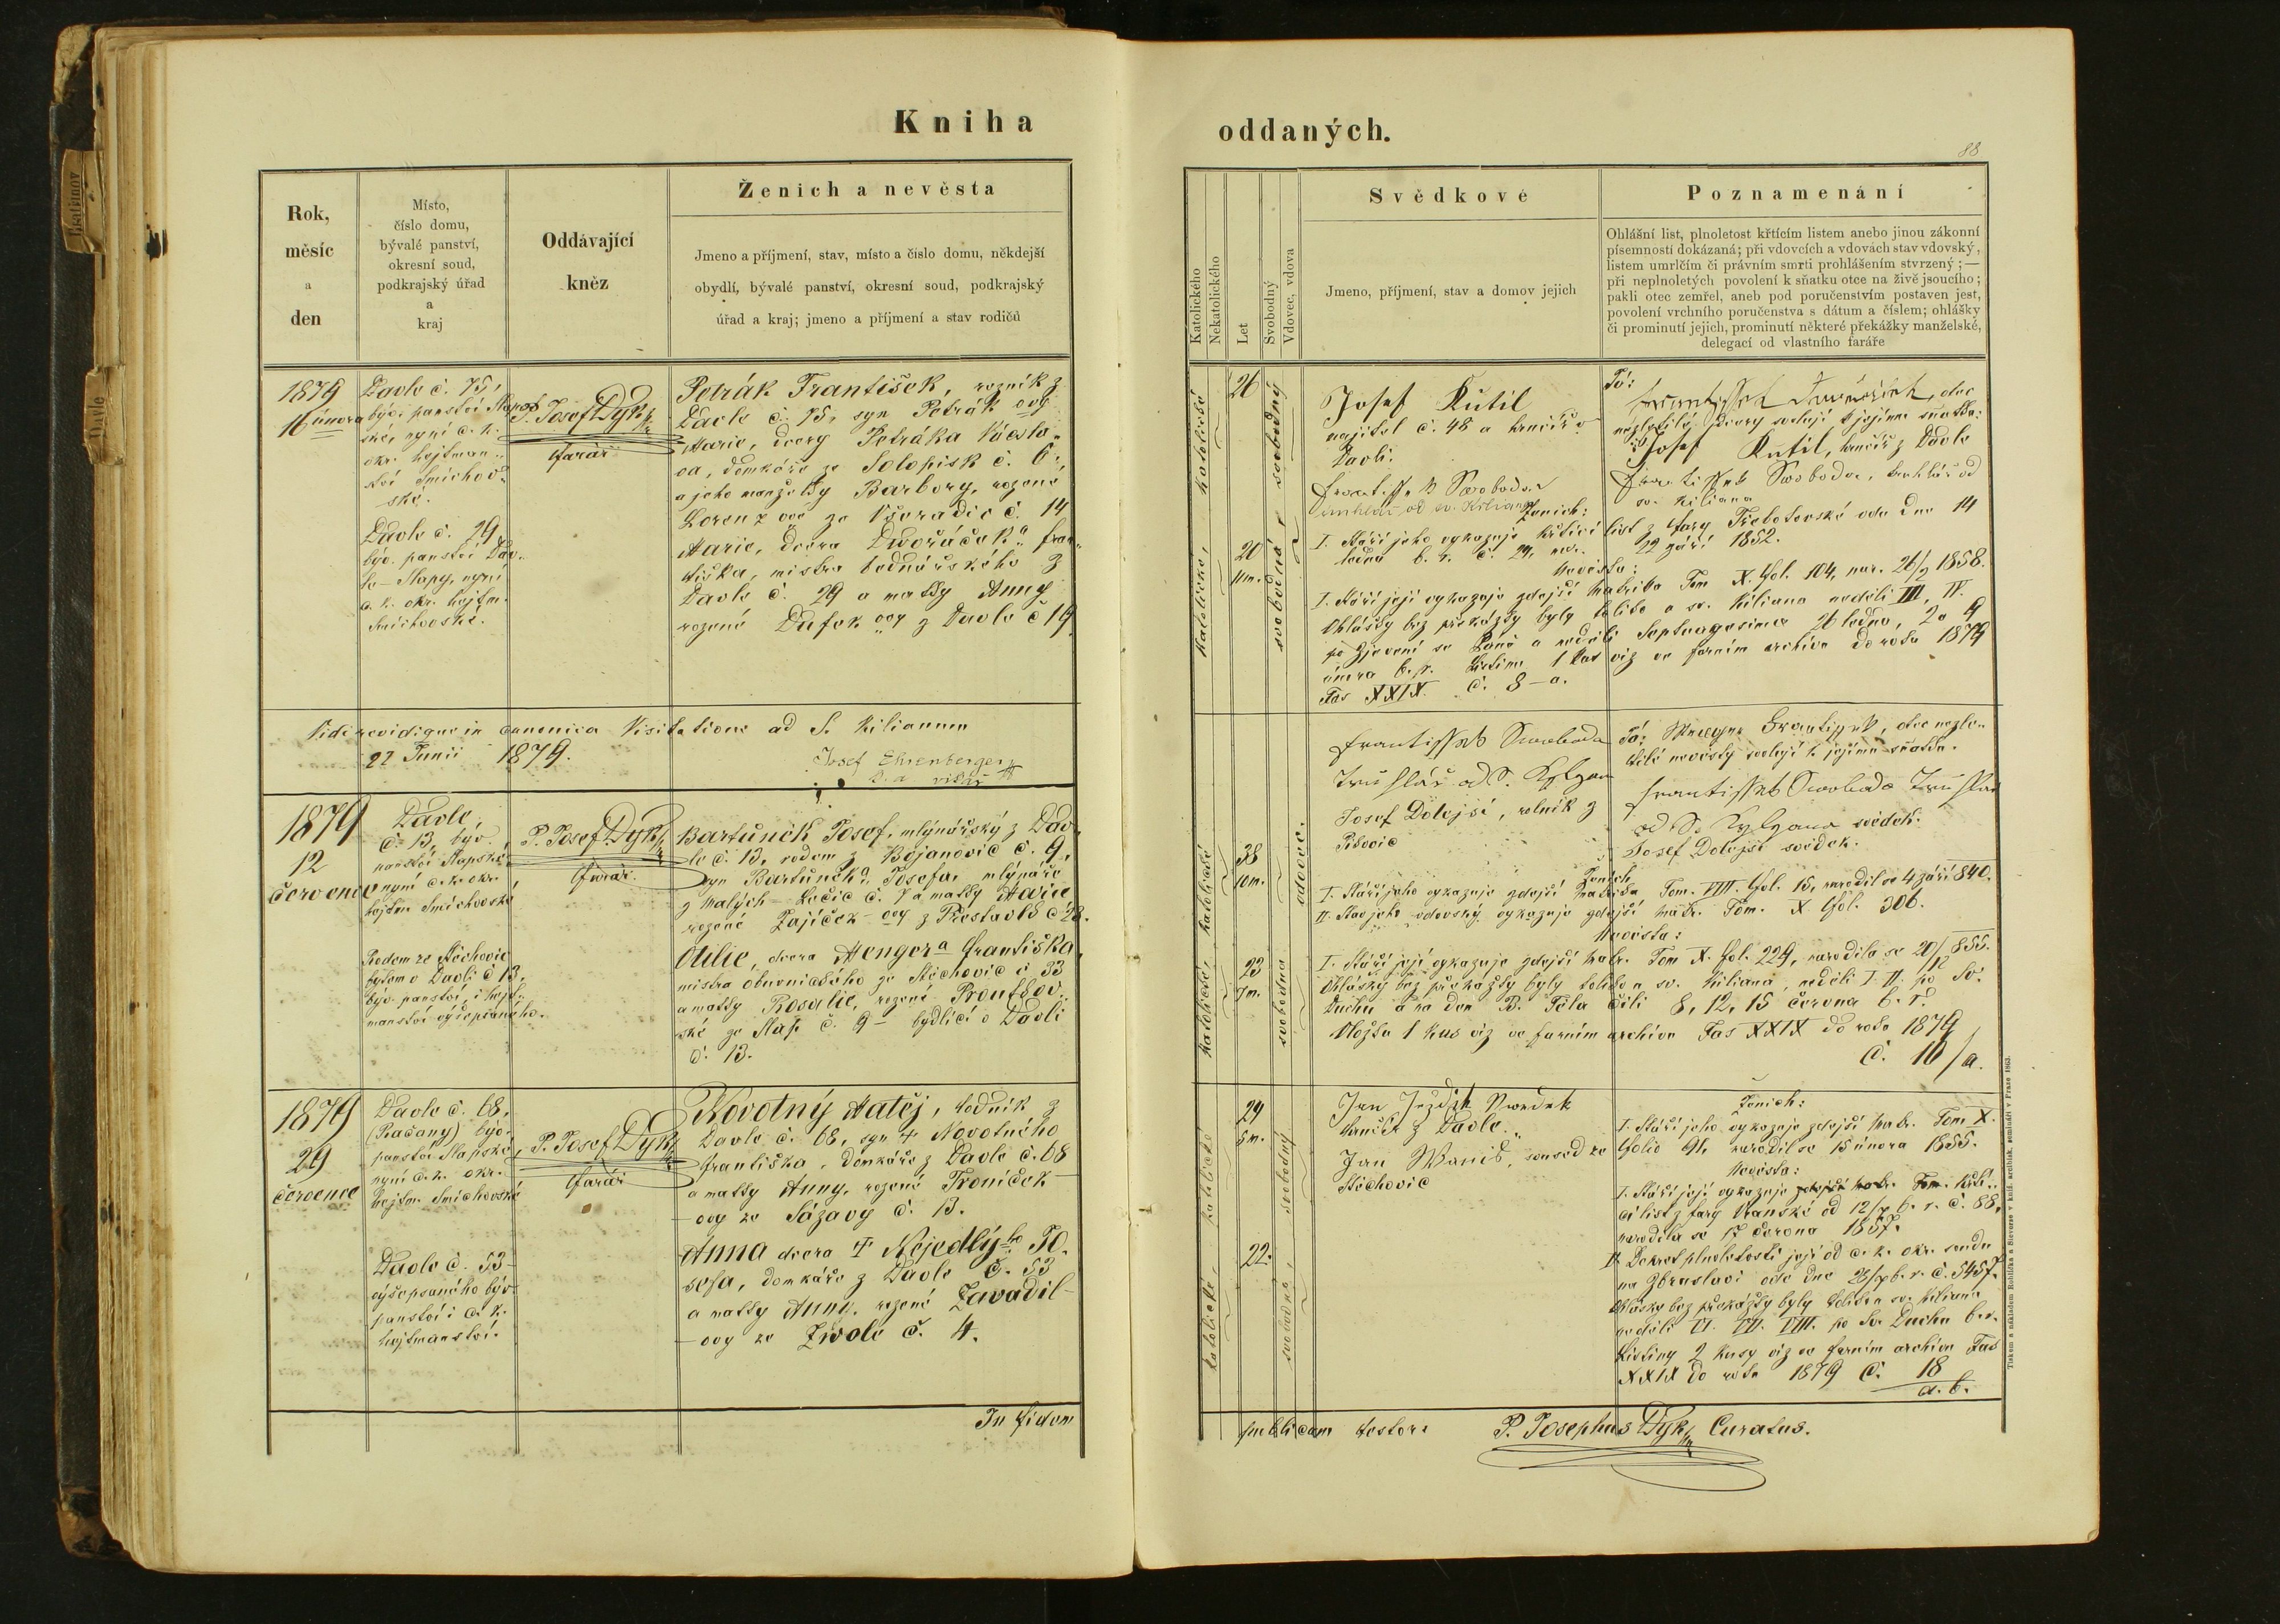 Kniha
oddaných.
88
Rok,
měsíc
a
den
Místo,
číslo domu,
bývalé panství,
okresní soud,
podkrajský úřad
a
kraj
Oddávající
kněz
Ženich a nevěsta
Jmeno a příjmení, stav, místo a čislo domu, někdejší
obydlí, bývalé panství, okresní soud, podkrajský
úřad a kraj; jmeno a příjmení a stav rodičů
Katolického
Nekatolického
Let
Svobodný
Vdovec, vdova
Svědkové
Jmeno, příjmení, stav a domov jejich
Poznamenání
Ohlášní list, plnoletost křtícím listem anebo jinou zákonní
písemností dokázaná; při vdovcích a vdovách stav vdovský,
listem umrlčím či právním smrti prohlášením stvrzený; —
při neplnoletých povolení k sňatku otce na živě jsoucího;
pakli otec zemřel, aneb pod poručenstvím postaven jest,
povolení vrchního poručenstva s dátum a číslem; ohlášky
či prominutí jejich, prominutí některé překážky manželské,
delegací od vlastního faráře
1879
16 února
Davle č. 75,
býv. panství Slap
ské, nyní c. k.
okr. hejtman
ství Smíchov
ské.
Davle č. 29
býv. panství Dav
le - Slapy, nyní
c. k. okr. hejtm.
Smíchovské.
P. Josef Dyk
farář
Petrák František, řezník z
Davle č. 75, syn Petrák ovy
Marie, dcery Petráka Václa
va, domkáře ze Solopisk č. 6,
a jeho manželky Barbory, rozené
Lorenz ovy ze Všeradic č. 14
Marie, dcera Dwořáčka Fran
tiška, mistra bednářského z
Davle č. 29 a matky Anny
rozené Dufek ovy z Davle č 19.
katolické, katolické
26
20
11m.
svobodná svobodný
Josef Kutil
majitel č. 48 a hrnčíř v
Davli.
Frantissek Swoboda
truhlář od sv. Kiliana
Já:
otec
nezletilé dcery svoluji k jejímu sňatku:
Josef Kutil, hrnčíř z Davle
Frantissek Swoboda, truhlář od
sv. Kiliana
Ženich:
I. Stáří jeho vykazuje křticí list z fary Třebotovské ode dne 14
ledna b. r. č. 29, nar. 22 září 1852.
Nevěsta:
I. Stáří její vykazuje zdejší matrika Tom X. Fol. 104, nar. 26/2 1858.
Ohlášky bez překážky byly tolito u sv. Kiliana neděli III, IV.
po Zjevení se Páně a neděli Septuagesima 26 ledna, 2 a 9
února b. r. Listina 1 kus viz ve farním archivu do roku 1879
Fas XXIX. č. 8 - a.
Vidi revidique in canonica Visitatione ad S. Kilianum
22 Junii 1879.
Josef Ehrenberger
b. a. vikář
1879
12
července
Davle,
č. 13, býv
panství Slapské,
nyní c. k. okr.
hejtm. Smíchovské
Rodem ze Štěchovic
bytem v Davli č 13,
býv. panství, i hejt
manství výšepsaného.
P. Josef Dyk
farář.
Bartuněk Josef, mlynářský z Dav
le č. 13, rodem z Bojanovic č. 9,
syn Bartuňka Josefa, mlynáře
z Malých - Lečic č. 7 a matky Marie
rozené Zajíček - ovy z Přestavlk č 28.
Otilie, dcera Mengera Františka,
mistra obuvnického ze Štěchovic č 33
a matky Rosalie, rozené Proutkov
ské ze Slap č. 9 - bydlící v Davli
č. 13.
katolické, katolické
38
10m.
23
7m.
svobodna
vdovec.
Frantissek Swoboda
Truhlář od S. Kylyan
Josef Dolejsí, rolník z
Pikovic
Já: Menger Frantissek, otec nezle
tilé nevěsty svoluji k jejímu sňatku.
Frantissek Swoboda Truhlář
od S. Kylyana svědek.
Josef Dolejsí svědek.
Ženich
I. Stáří jeho vykazuje zdejší matrika Tom. VIII. Fol. 15, narodil se 4 září 840.
II. Stav jeho vdovský vykazuje zdejší matr. Tom. X Fol. 306.
Nevěsta:
I. Stáří její vykazuje zdejší matr. Tom X. Fol. 229, narodila se 20/12 855.
Ohlášky bez překážky byly tolito u sv. Kiliana, neděli I. II. po Sv.
Duchu a na den B. Těla čili 8, 12, 15 června b. r.
Vložka 1 kus viz ve farním archivu Fas XXIX do roku 1879
č. 10/a.
1879
29
července
Davle č. 68,
býv.
panství Slapské,
nyní c. k. okr.
hejtm. Smíchovské
Davle č. 53
výšepsaného býv.
panství i c. k.
hejtmanství.
P. Josef Dyk
farář
Novotný Matěj, lodník z
Davle č. 68, syn † Novotného
Františka, domkáře z Davle č. 68
a matky Anny, rozené Troníček
- ovy ze Sázavy č. 13.
Anna dcera † Nejedlýho Jo
sefa, domkáře z Davle č. 53
a matky Anny, rozené Zavadil
- ovy ze Zwole č. 4.
katolické, katolické
29
5m.
22.
svobodná, svobodný
Jan Ježdík Swedek
hrnčíř z Davle.
Jan Waniš, soused ze
Stěchovic
Ženich:
I. Stáří jeho vykazuje zdejší matr. Tom X.
Folio 91, narodil se 15 února 1855.
Nevěsta:
I. Stáří její vykazuje zdejší matr. Tom. křti
cí list z fary Vranské od 12/7 b. r. č. 88,
narodila se 17 června 1857.
II. Dekret plnoletosti její od c. k. okr. soudu
na Zbraslavi ode dne 26/7 b. r. č. 5457.
Ohlášky bez překážky byly tolito u sv. Kiliana
neděli VI. VII. VIII. po Sv. Duchu b. r.
Listiny 2 kusy viz ve farním archivu Fas
XXIX do roku 1879 č. 18
a. b.
In fidem
publicam testor:
P. Josephus Dyk, Curatus.
Tiskem a nákladem Rohlíčka a Sieversa v kníž. arcibisk. semináři v Praze 1863.
Davle